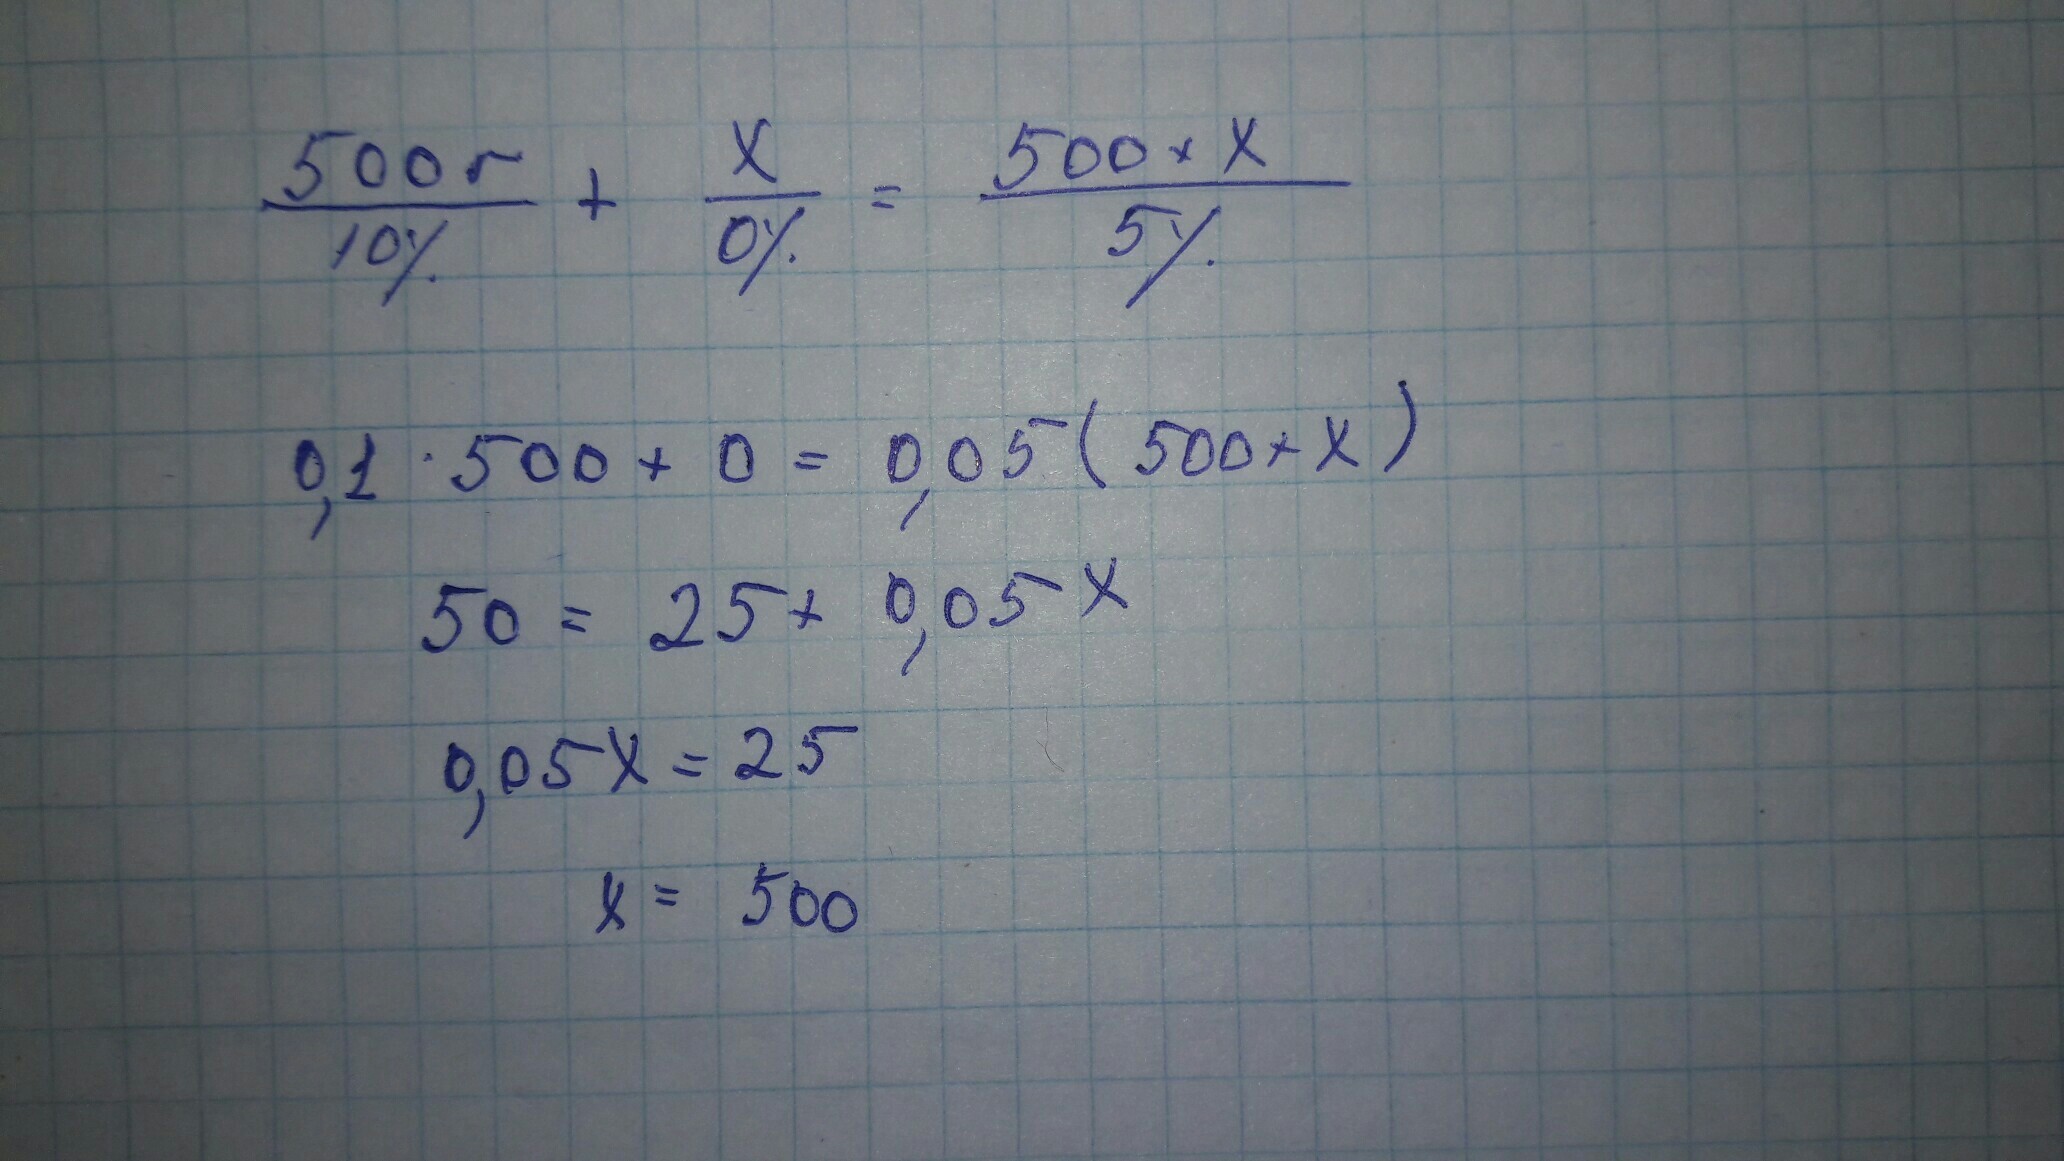 500г + x = 500 + x
10% 0% 5%
0,1 · 500 + 0 = 0,05 ( 500 + x )
50 = 25 + 0,05 x
0,05 x = 25
x = 500